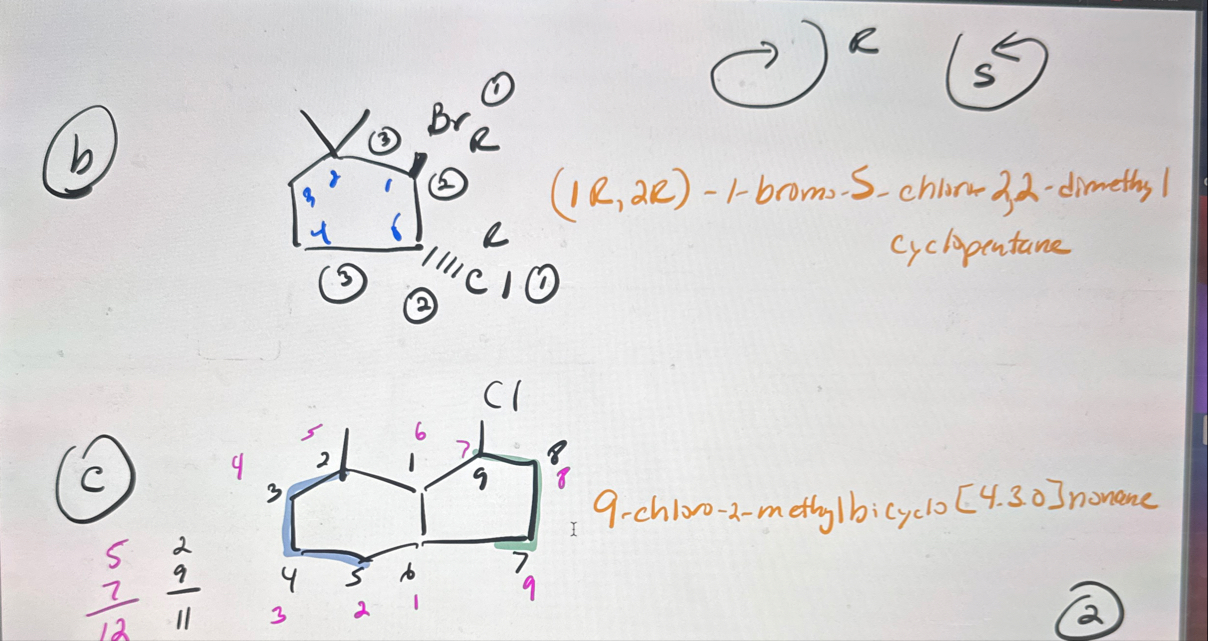 R
S
b
①
Br R
③
②
2 1
3
4 6
R
Cl ①
③
②
(1R, 2R) - 1-bromo-5-chloro-2,2-dimethyl
cyclopentane
c
Cl
5 6 7
4 2 1 9 8
3 8
4 5 6 7
3 2 1 9
9-chloro-2-methylbicyclo[4.3.0]nonane
5 2
7 9
12 11
②